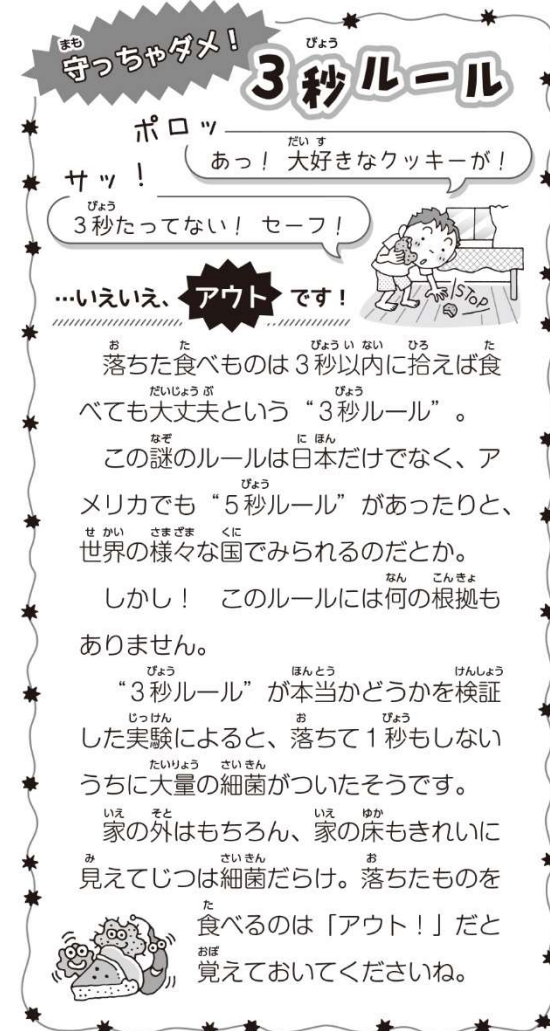 守っちゃダメ！
3秒ルール
ポロッ
あっ！ 大好きなクッキーが！
サッ！
3秒たってない！ セーフ！
STOP
…いえいえ、アウトです！
落ちた食べものは3秒以内に拾えば食
べても大丈夫という“3秒ルール”。
この謎のルールは日本だけでなく、ア
メリカでも“5秒ルール”があったりと、
世界の様々な国でみられるのだとか。
しかし！ このルールには何の根拠も
ありません。
“3秒ルール”が本当かどうかを検証
した実験によると、落ちて1秒もしない
うちに大量の細菌がついたそうです。
家の外はもちろん、家の床もきれいに
見えてじつは細菌だらけ。落ちたものを
食べるのは「アウト！」だと
覚えておいてくださいね。